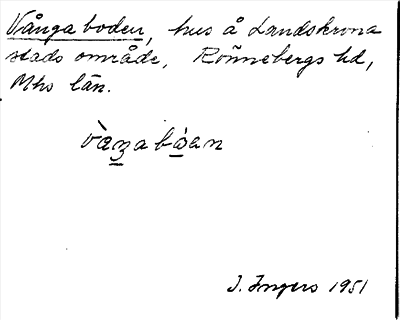 Vånga boden, hus å Landskrona
stads område, Rönnebergs hd,
Mhs län.
I. Ingers 1951